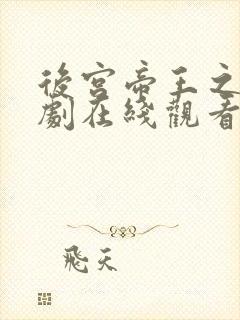 後宮帝王之
劇在綫觀看
飛天